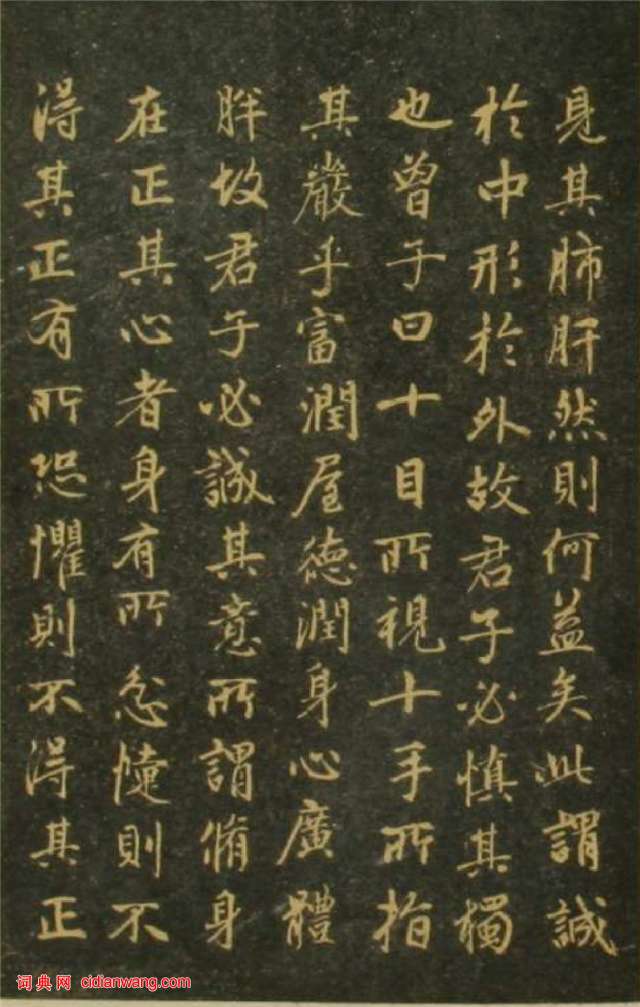 見其肺肝然則何益矣此謂誠
於中形於外故君子必慎其獨
也曾子曰十目所視十手所指
其嚴乎富潤屋德潤身心廣體
胖故君子必誠其意所謂脩身
在正其心者身有所忿懥則不
得其正有所恐懼則不得其正
词典网 cidianwang.com